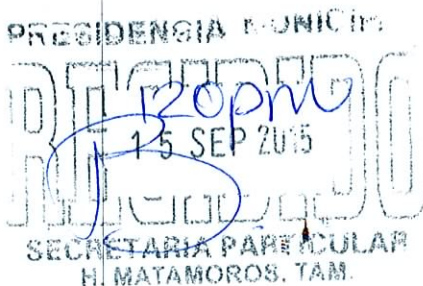 PRESIDENCIA MUNICIP
RECIBIDO
120pm
15 SEP 2015
SECRETARIA PARTICULAR
H. MATAMOROS, TAM.